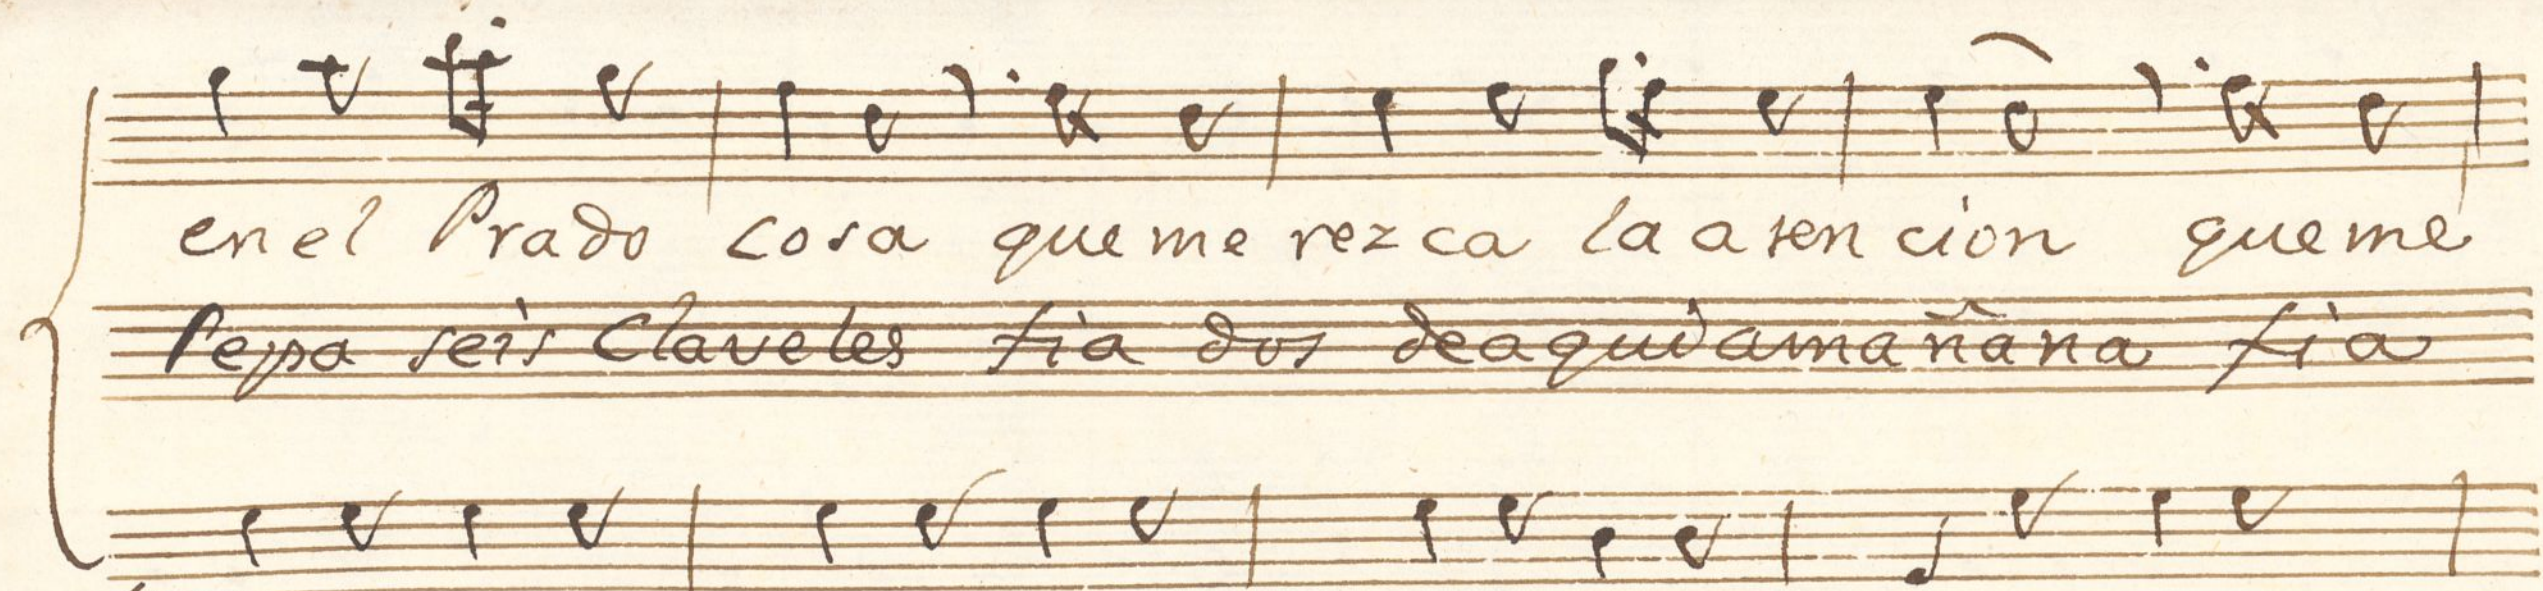 en el Prado cosa que me rezca la a ten cion que me
Pepa seis Claveles fia dos de aqui a mañana fia